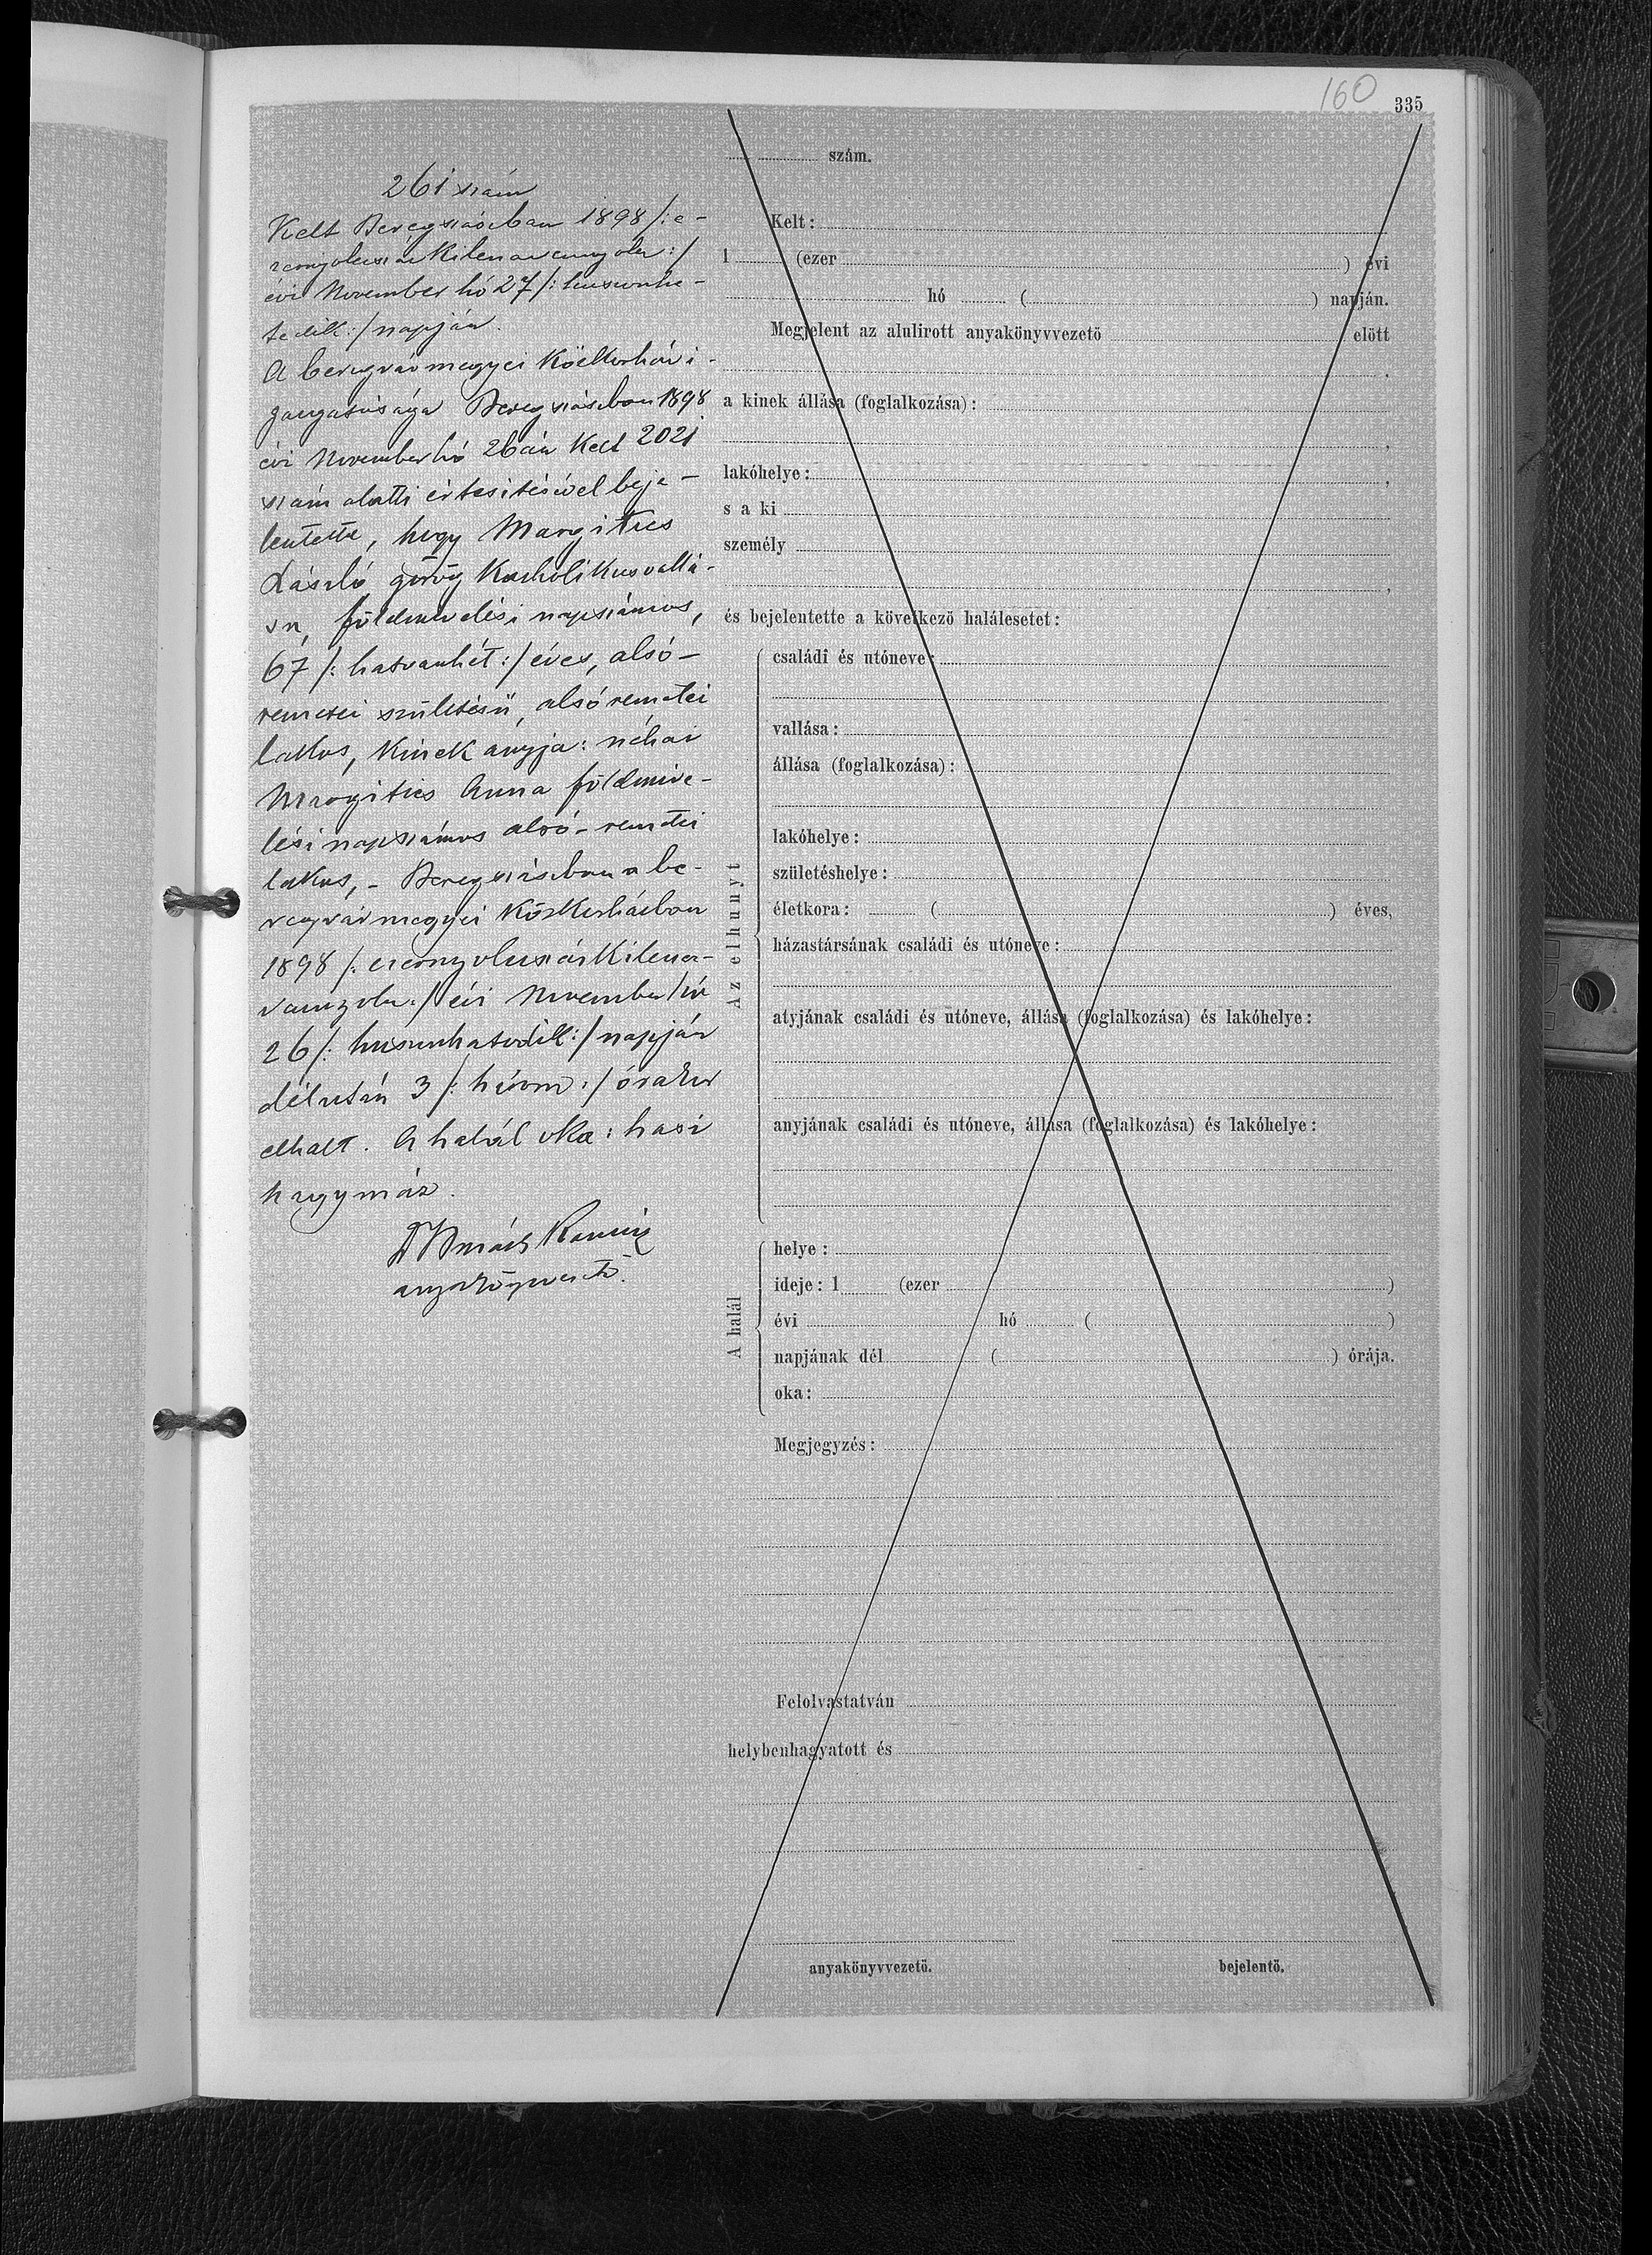 160
335
261 szám
Kelt Beregszászban 1898 /: e-
zernyolcszázkilencvennyolcz :/
évi November hó 27 /: huszonhe-
tedik :/ napján.
A beregvármegyei Közkórház i-
gazgatósága Beregszászban 1898
évi November hó 26án kelt 2021
szám alatti értesitésével beje-
lentette, hogy Margitics
László görög katholikus vallá-
su, földmivelési napszámos,
67 /: hatvanhét :/ éves, alsó-
remetei születésü, alsó remetei
lakos, kinek anyja: néhai
Margitics Anna földmive-
lési napszámos alsó-remetei
lakos, - Beregszászban a be-
regvármegyei közkórházban
1898 /: ezernyolcszázkilencz-
vennyolcz :/ évi November hó
26 /: huszonhatodik :/ napján
délután 3 /: három :/ órakor
elhalt. A halál oka: hasi
hagymáz.
anyakönyvvezető.
szám.
Kelt:
1 (ezer ) évi
hó ( ) napján.
Megjelent az alulirott anyakönyvvezető előtt
,
a kinek állása (foglalkozása):
,
lakóhelye: ,
s a ki
személy
,
és bejelentette a következő halálesetet:
Az elhunyt
családi és utóneve:
vallása:
állása (foglalkozása):
lakóhelye:
születéshelye:
életkora: ( ) éves,
házastársának családi és utóneve:
atyjának családi és utóneve, állása (foglalkozása) és lakóhelye:
anyjának családi és utóneve, állása (foglalkozása) és lakóhelye:
A halál
helye:
ideje: 1 (ezer )
évi hó ( )
napjának dél ( ) órája.
oka:
Megjegyzés:
Felolvastatván
helybenhagyatott és
anyakönyvvezető. bejelentő.